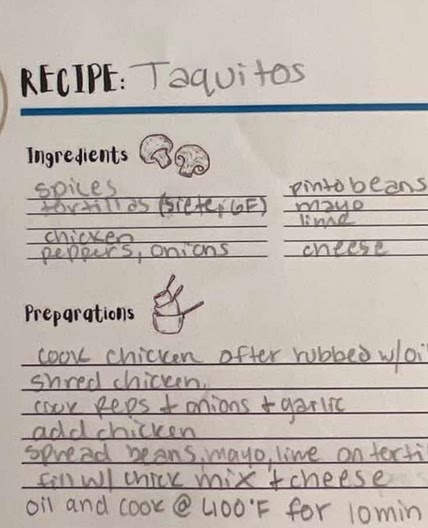 RECIPE: Taquitos
Ingredients
spices
tortillas (siete, GF)
chicken
peppers, onions
pinto beans
mayo
lime
cheese
Preparations
cook chicken after rubbed w/oi
shred chicken.
cook peps + onions + garlic
add chicken
spread beans, mayo, lime on torti
fill w/ chick mix + cheese
oil and cook @ 400°F for 10min